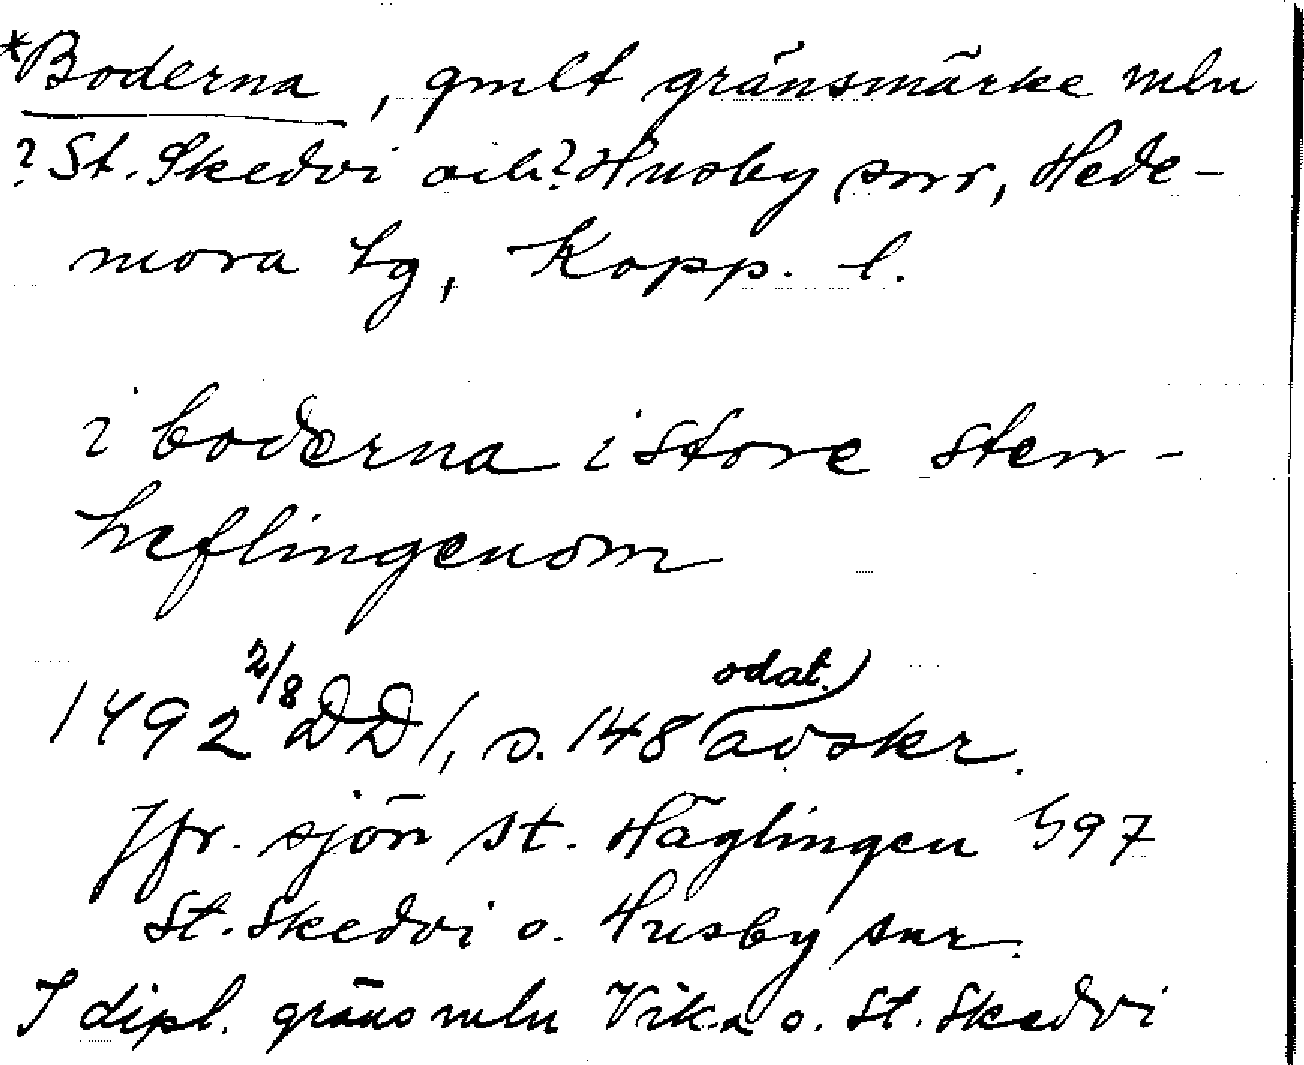 *Boderna, gmlt gränsmärke mln
? St. Skedvi och ? Husby snr, Hede-
mora tg, Kopp. l.
i boderna i store sten-
heflingenom
1492 2/8 DD 1, s. 148 (odat.) avskr.
Jfr. sjön St. Häglingen h97
St. Skedvi o. Husby snr.
I dipl. gräns mln Vika o. St. Skedvi